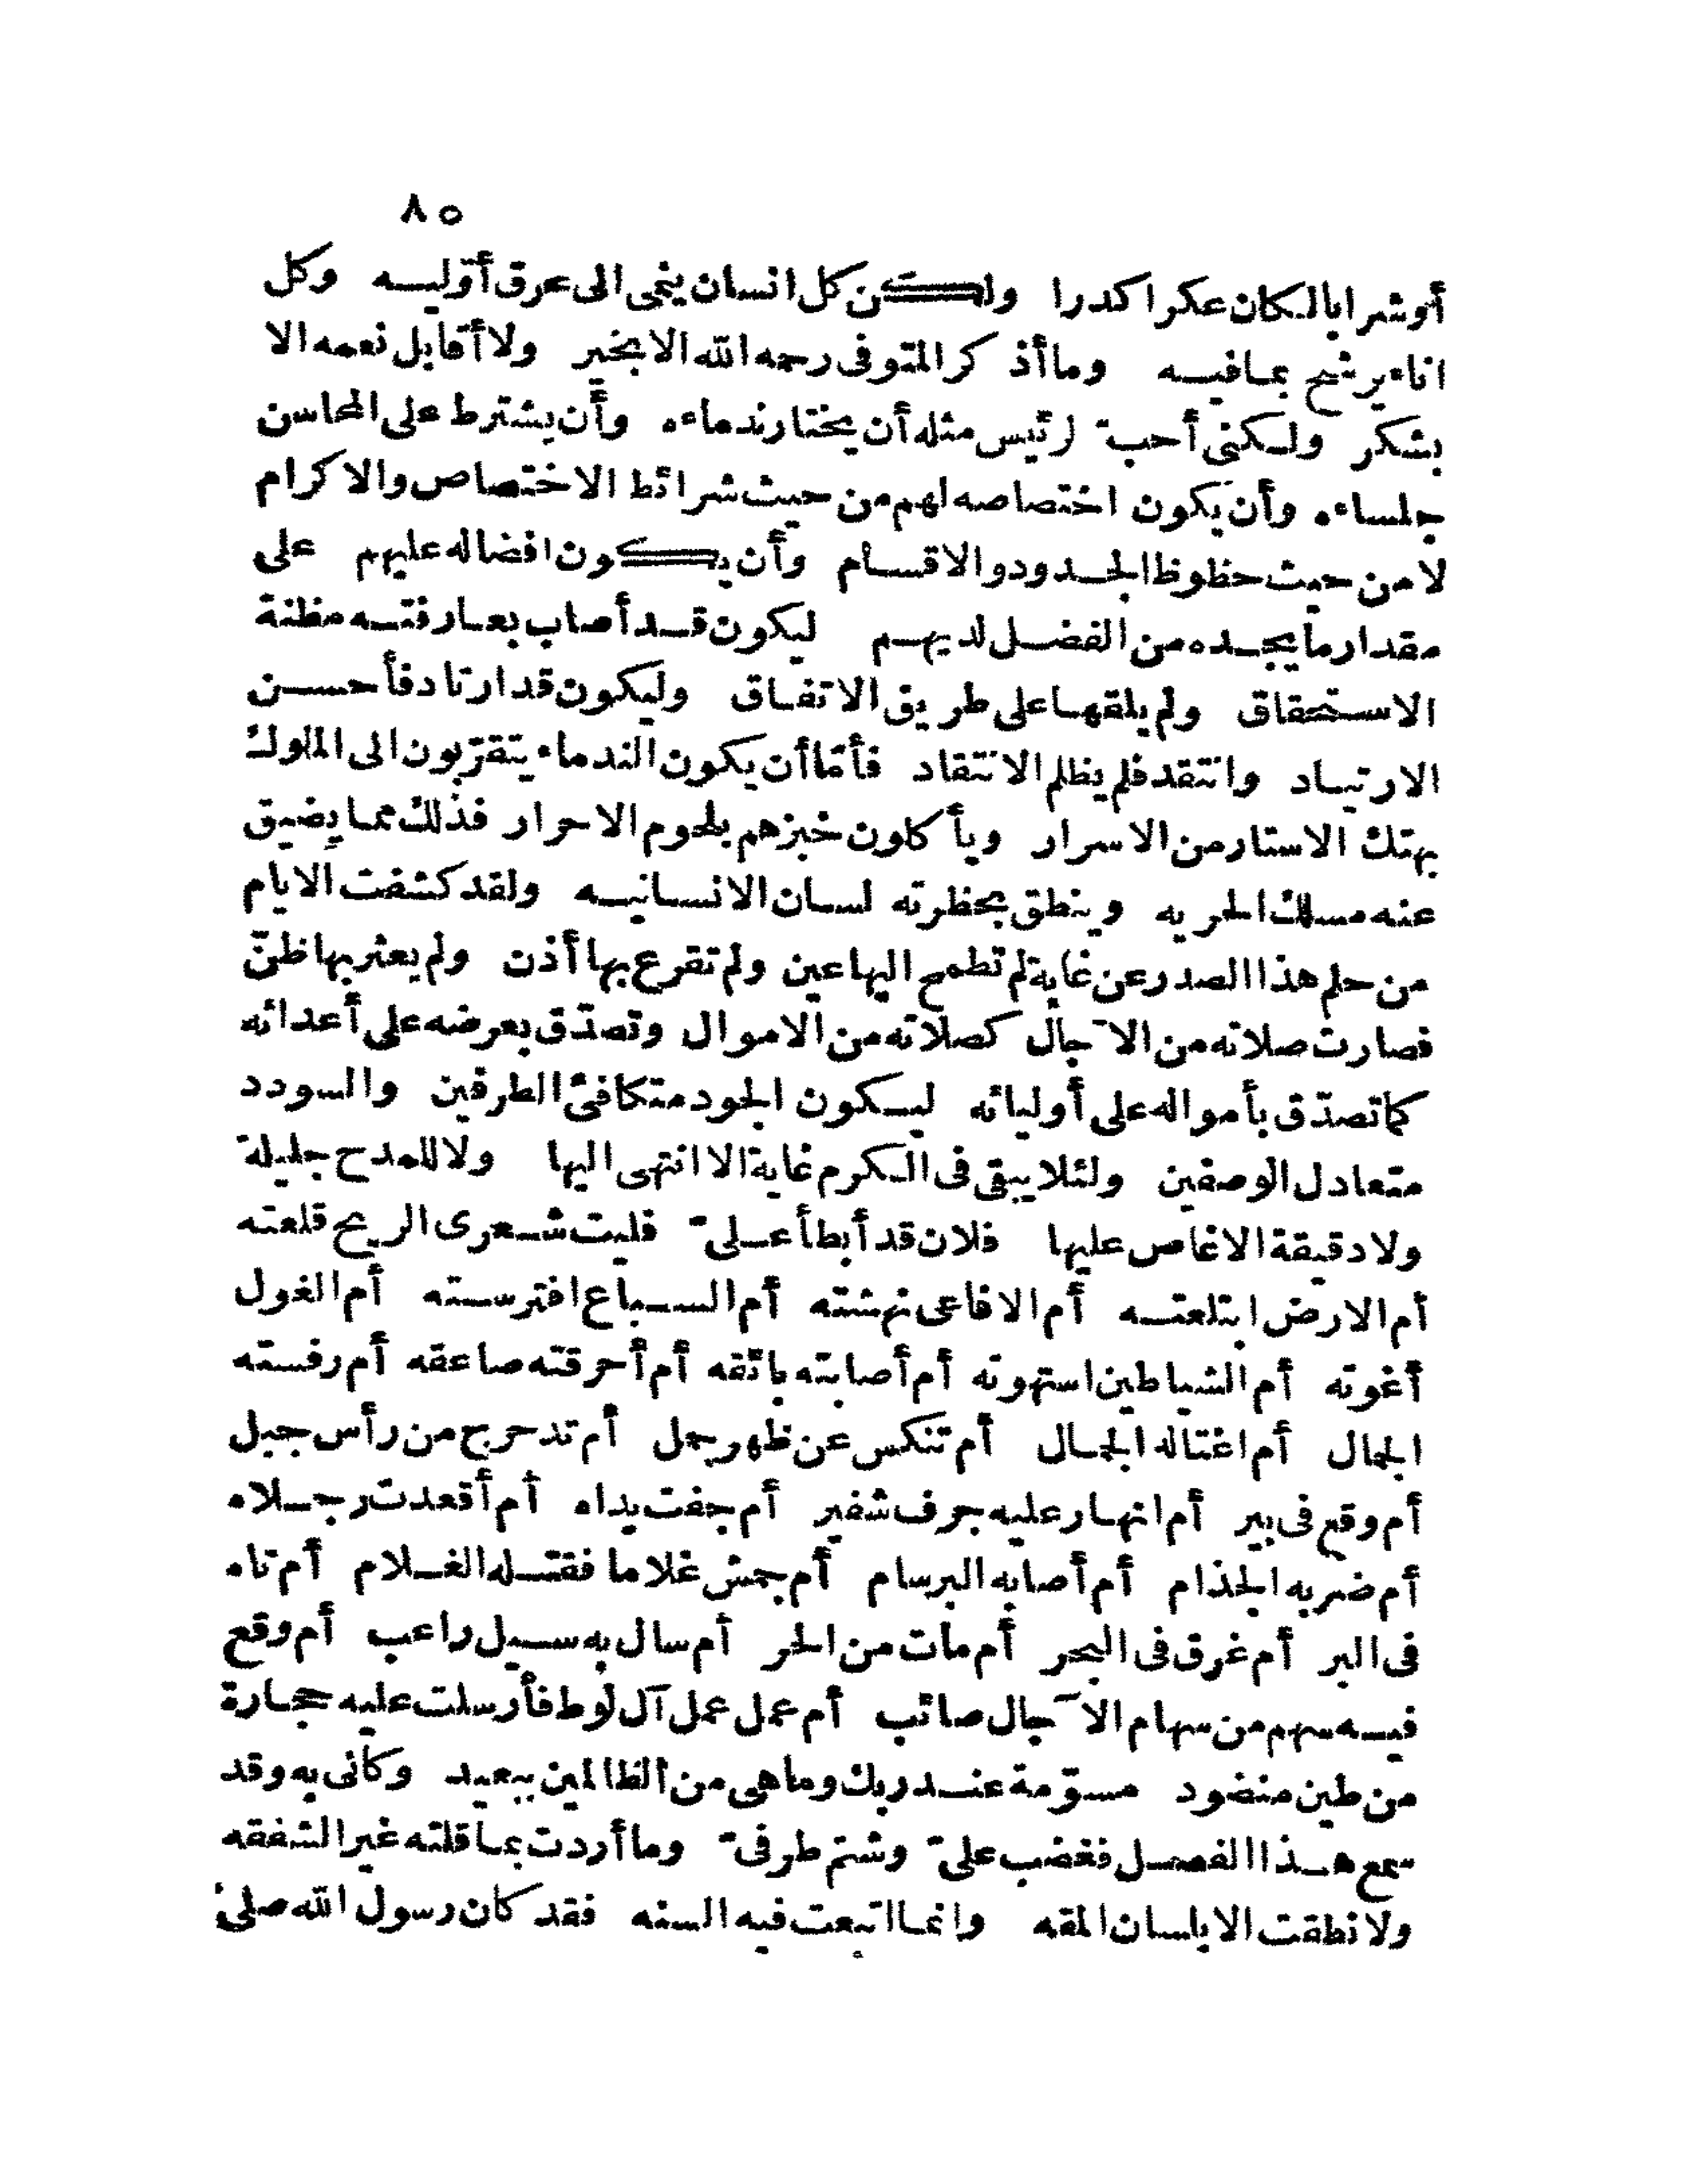 ٨٥
أو شرابا لكان عكرا كدرا ولكن كل انسان ينمى الى عرق أوّليه وكل
اناء يرشح بمافيه وما أذكر المتوفى رحمه الله الا بخير ولا أقابل نعمه الا
بشكر ولكنى أحبّ لرئيس مثله أن يختار ندماءه وأن يشترط على المحاسن
جلساءه وأن يكون اختصاصه لهم من حيث شرائط الاختصاص والاكرام
لا من حيث حظوظ الجدود والاقسام وأن يكون افضاله عليهم على
مقدار ما يجده من الفضل لديهم ليكون قد أصاب بعارفته مظنة
الاستحقاق ولم يلقها على طريق الاتفاق وليكون قد ارتاد فأحسن
الارتياد وانتقد فلم يظلم الانتقاد فأمّا أن يكون الندماء يتقرّبون الى الملوك
بهتك الاستار من الاسرار ويأكلون خبزهم بلحوم الاحرار فذلك مما يضيق
عنه مسلك الحريه وينطق بحظرته لسان الانسانيه ولقد كشفت الايام
من حلم هذا الصدر عن غاية لم تطمح اليها عين ولم تقرع بها أذن ولم يعثر بها ظنّ
فصارت صلاته من الآجال كصلاته من الاموال وتصدّق بعرضه على أعدائه
كما تصدّق بأمواله على أوليائه ليكون الجود متكافئ الطرفين والسودد
متعادل الوصفين ولئلا يبقى فى الكرم غاية الا انتهى اليها ولا للمدح جليلة
ولا دقيقة الا غاص عليها فلان قد أبطأ علىّ فليت شعرى الريح قلعته
أم الارض ابتلعته أم الافاعى نهشته أم السباع افترسته أم الغول
أغوته أم الشياطين استهوته أم أصابته بائقه أم أحرقته صاعقه أم رفسته
الجمال أم اغتاله الجمال أم تنكس عن ظهر جمل أم تدحرج من رأس جبل
أم وقع فى بير أم انهار عليه جرف شفير أم جفت يداه أم أقعدت رجلاه
أم ضربه الجذام أم أصابه البرسام أم جمش غلاما فقتله الغلام أم تاه
فى البر أم غرق فى البحر أم مات من الحر أم سال به سيل راعب أم وقع
فيه سهم من سهام الآجال صائب أم عمل عمل آل لوط فأرسلت عليه حجارة
من طين منضود مسوّمة عند ربك وما هى من الظالمين ببعيد وكانى به وقد
سمع هذا الفصل فغضب علىّ وشتم طرفىّ وما أردت بما قلته غير الشفقه
ولا نطقت الا بلسان المقه وانما اتبعت فيه السنه فقد كان رسول الله صلى